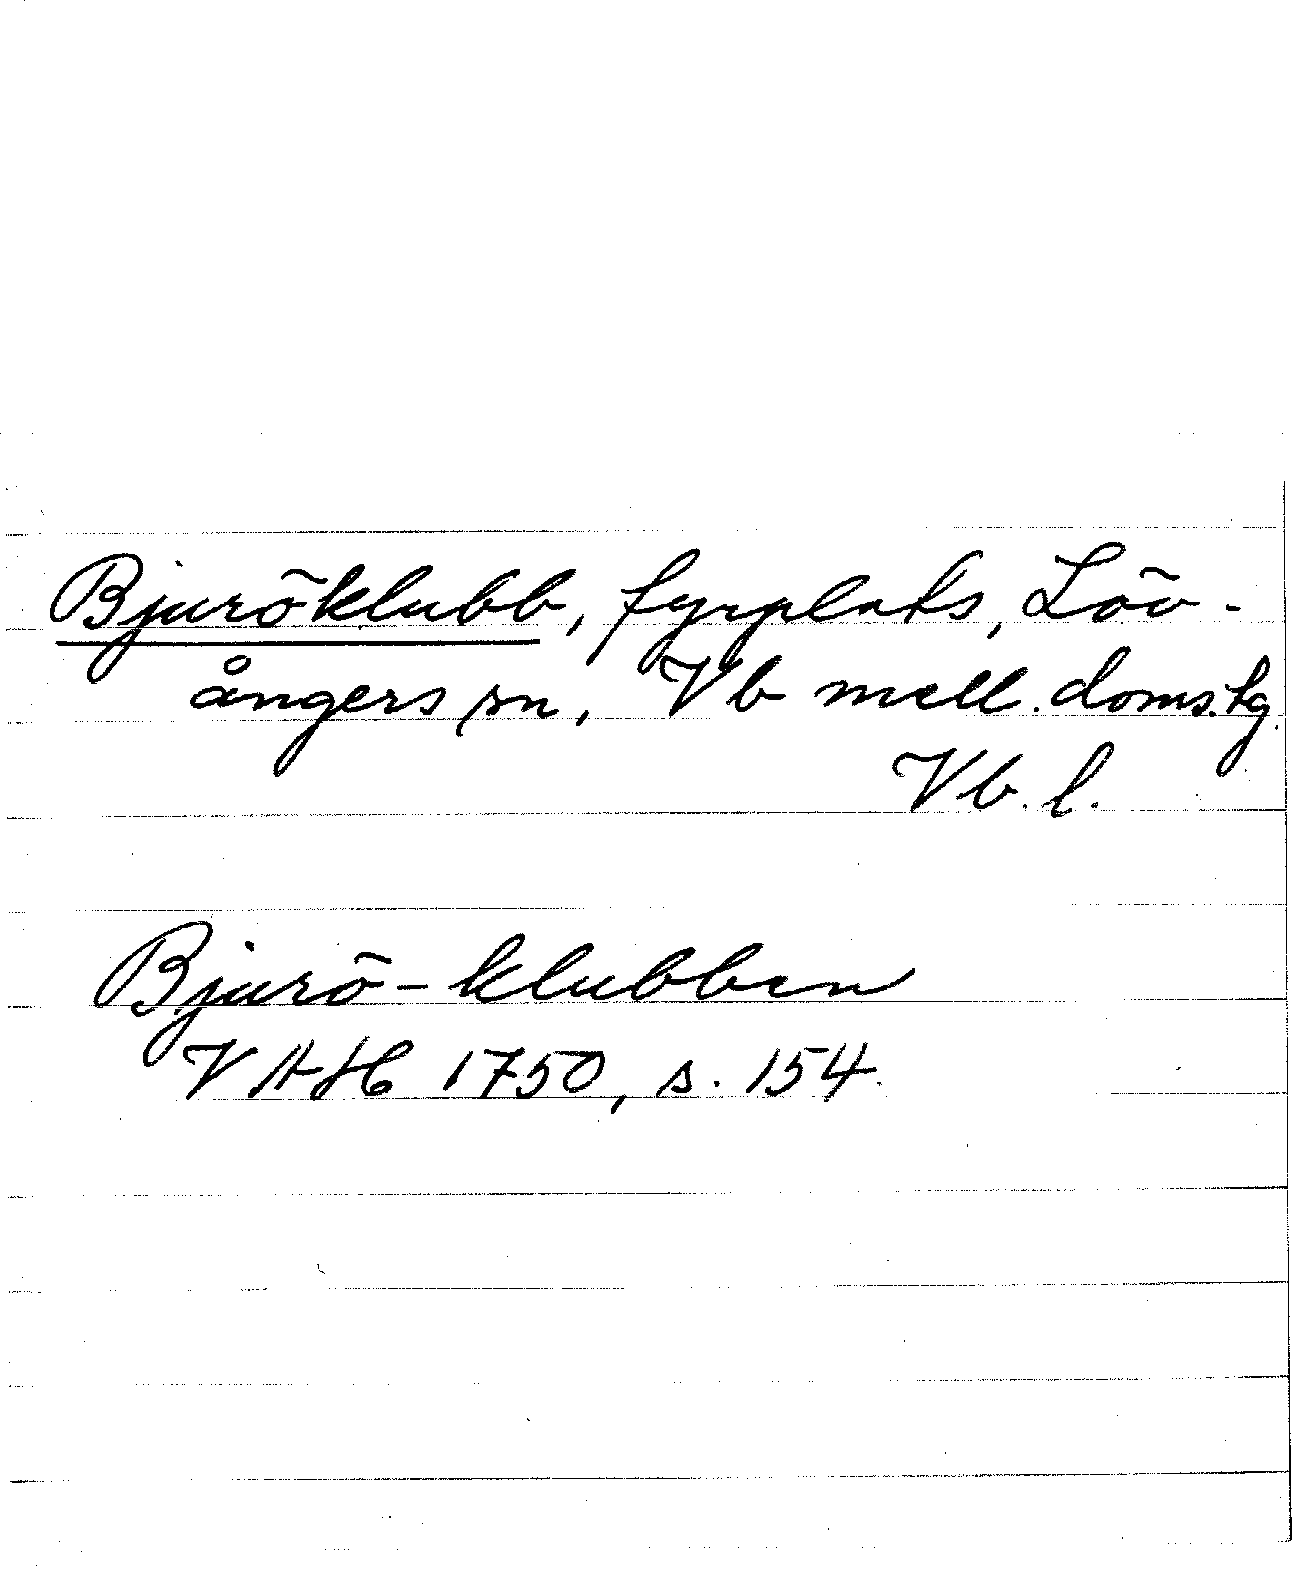 Bjuröklubb, fyrplats, Löv-
ångers sn, Vb mell. doms.sg.
Vb. l.
Bjurö-klubben
VAH 1750, s. 154.